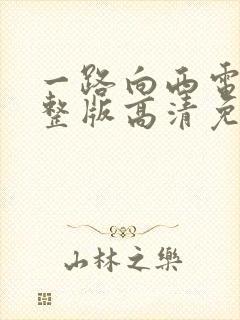 一路向西电
整版高清免
山林之樂